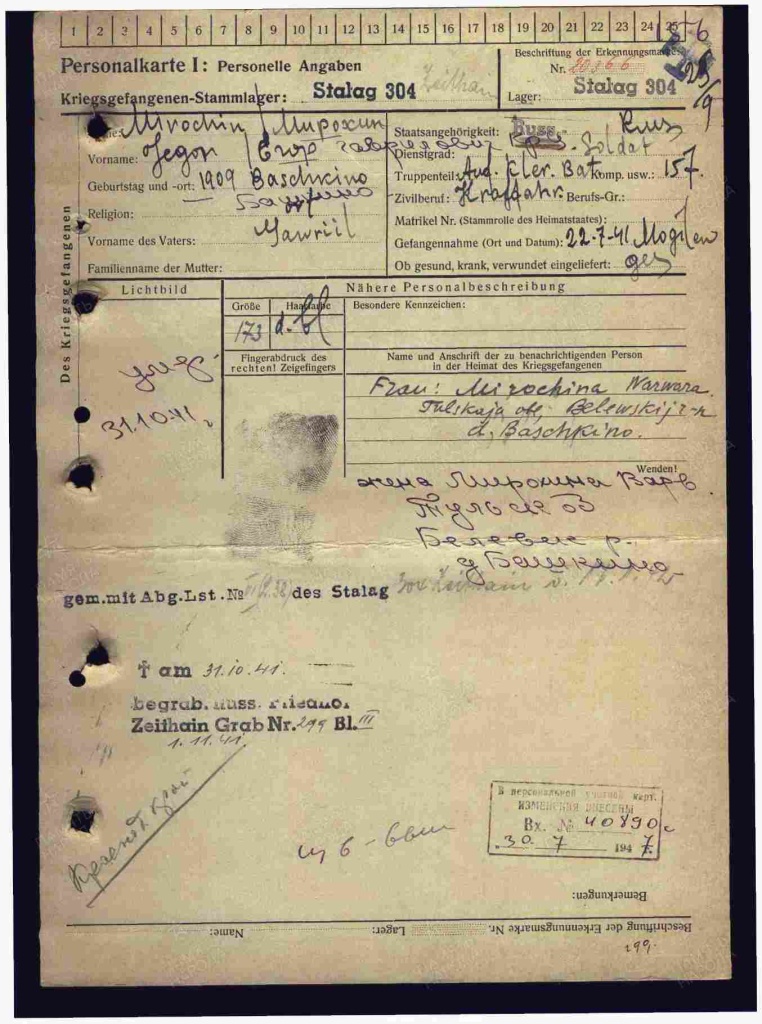 1 2 3 4 5 6 7 8 9 10 11 12 13 14 15 16 17 18 19 20 21 22 23 24 25
Personalkarte I: Personelle Angaben
Kriegsgefangenen-Stammlager: Stalag 304 Zeithain
Beschriftung der Erkennungsmarke
Nr.
Lager: Stalag 304
Des Kriegsgefangenen
Mirochin / Мирохин
Vorname: Jegor / Егор Гаврилович
Geburtstag und -ort: 1909 Baschkino
Башкино
Religion:
Vorname des Vaters: Gawriil
Familienname der Mutter:
Staatsangehörigkeit: Russ.
Dienstgrad: Soldat
Truppenteil: Komp. usw.: 157.
Zivilberuf: Kraftfahr. Berufs-Gr.:
Matrikel Nr. (Stammrolle des Heimatstaates):
Gefangennahme (Ort und Datum): 22-7-41 Mogilew
Ob gesund, krank, verwundet eingeliefert: ges
Lichtbild
Nähere Personalbeschreibung
Größe Haarfarbe Besondere Kennzeichen:
173 d. bl
Fingerabdruck des
rechten! Zeigefingers
Name und Anschrift der zu benachrichtigenden Person
in der Heimat des Kriegsgefangenen
умер
31.10.41 г
Frau: Mirochina Warwara
Tulskaja obl. Belewskij r-n
d. Baschkino.
Wenden!
жена Мирохина Варв
Тульск об
Белевск р.
д Башкино
gem. mit Abg. Lst. № des Stalag 304 Zeithain
† am 31.10.41.
begrab. Russ. Friedhof
Zeithain Grab Nr. 299 Bl. III
1.11.41.
В персональной учетной карт.
ИЗМЕНЕНИЯ ВНЕСЕНЫ
Вх. № 40890
30 7 1947
Bemerkungen:
Beschriftung der Erkennungsmarke Nr. Lager: Name: